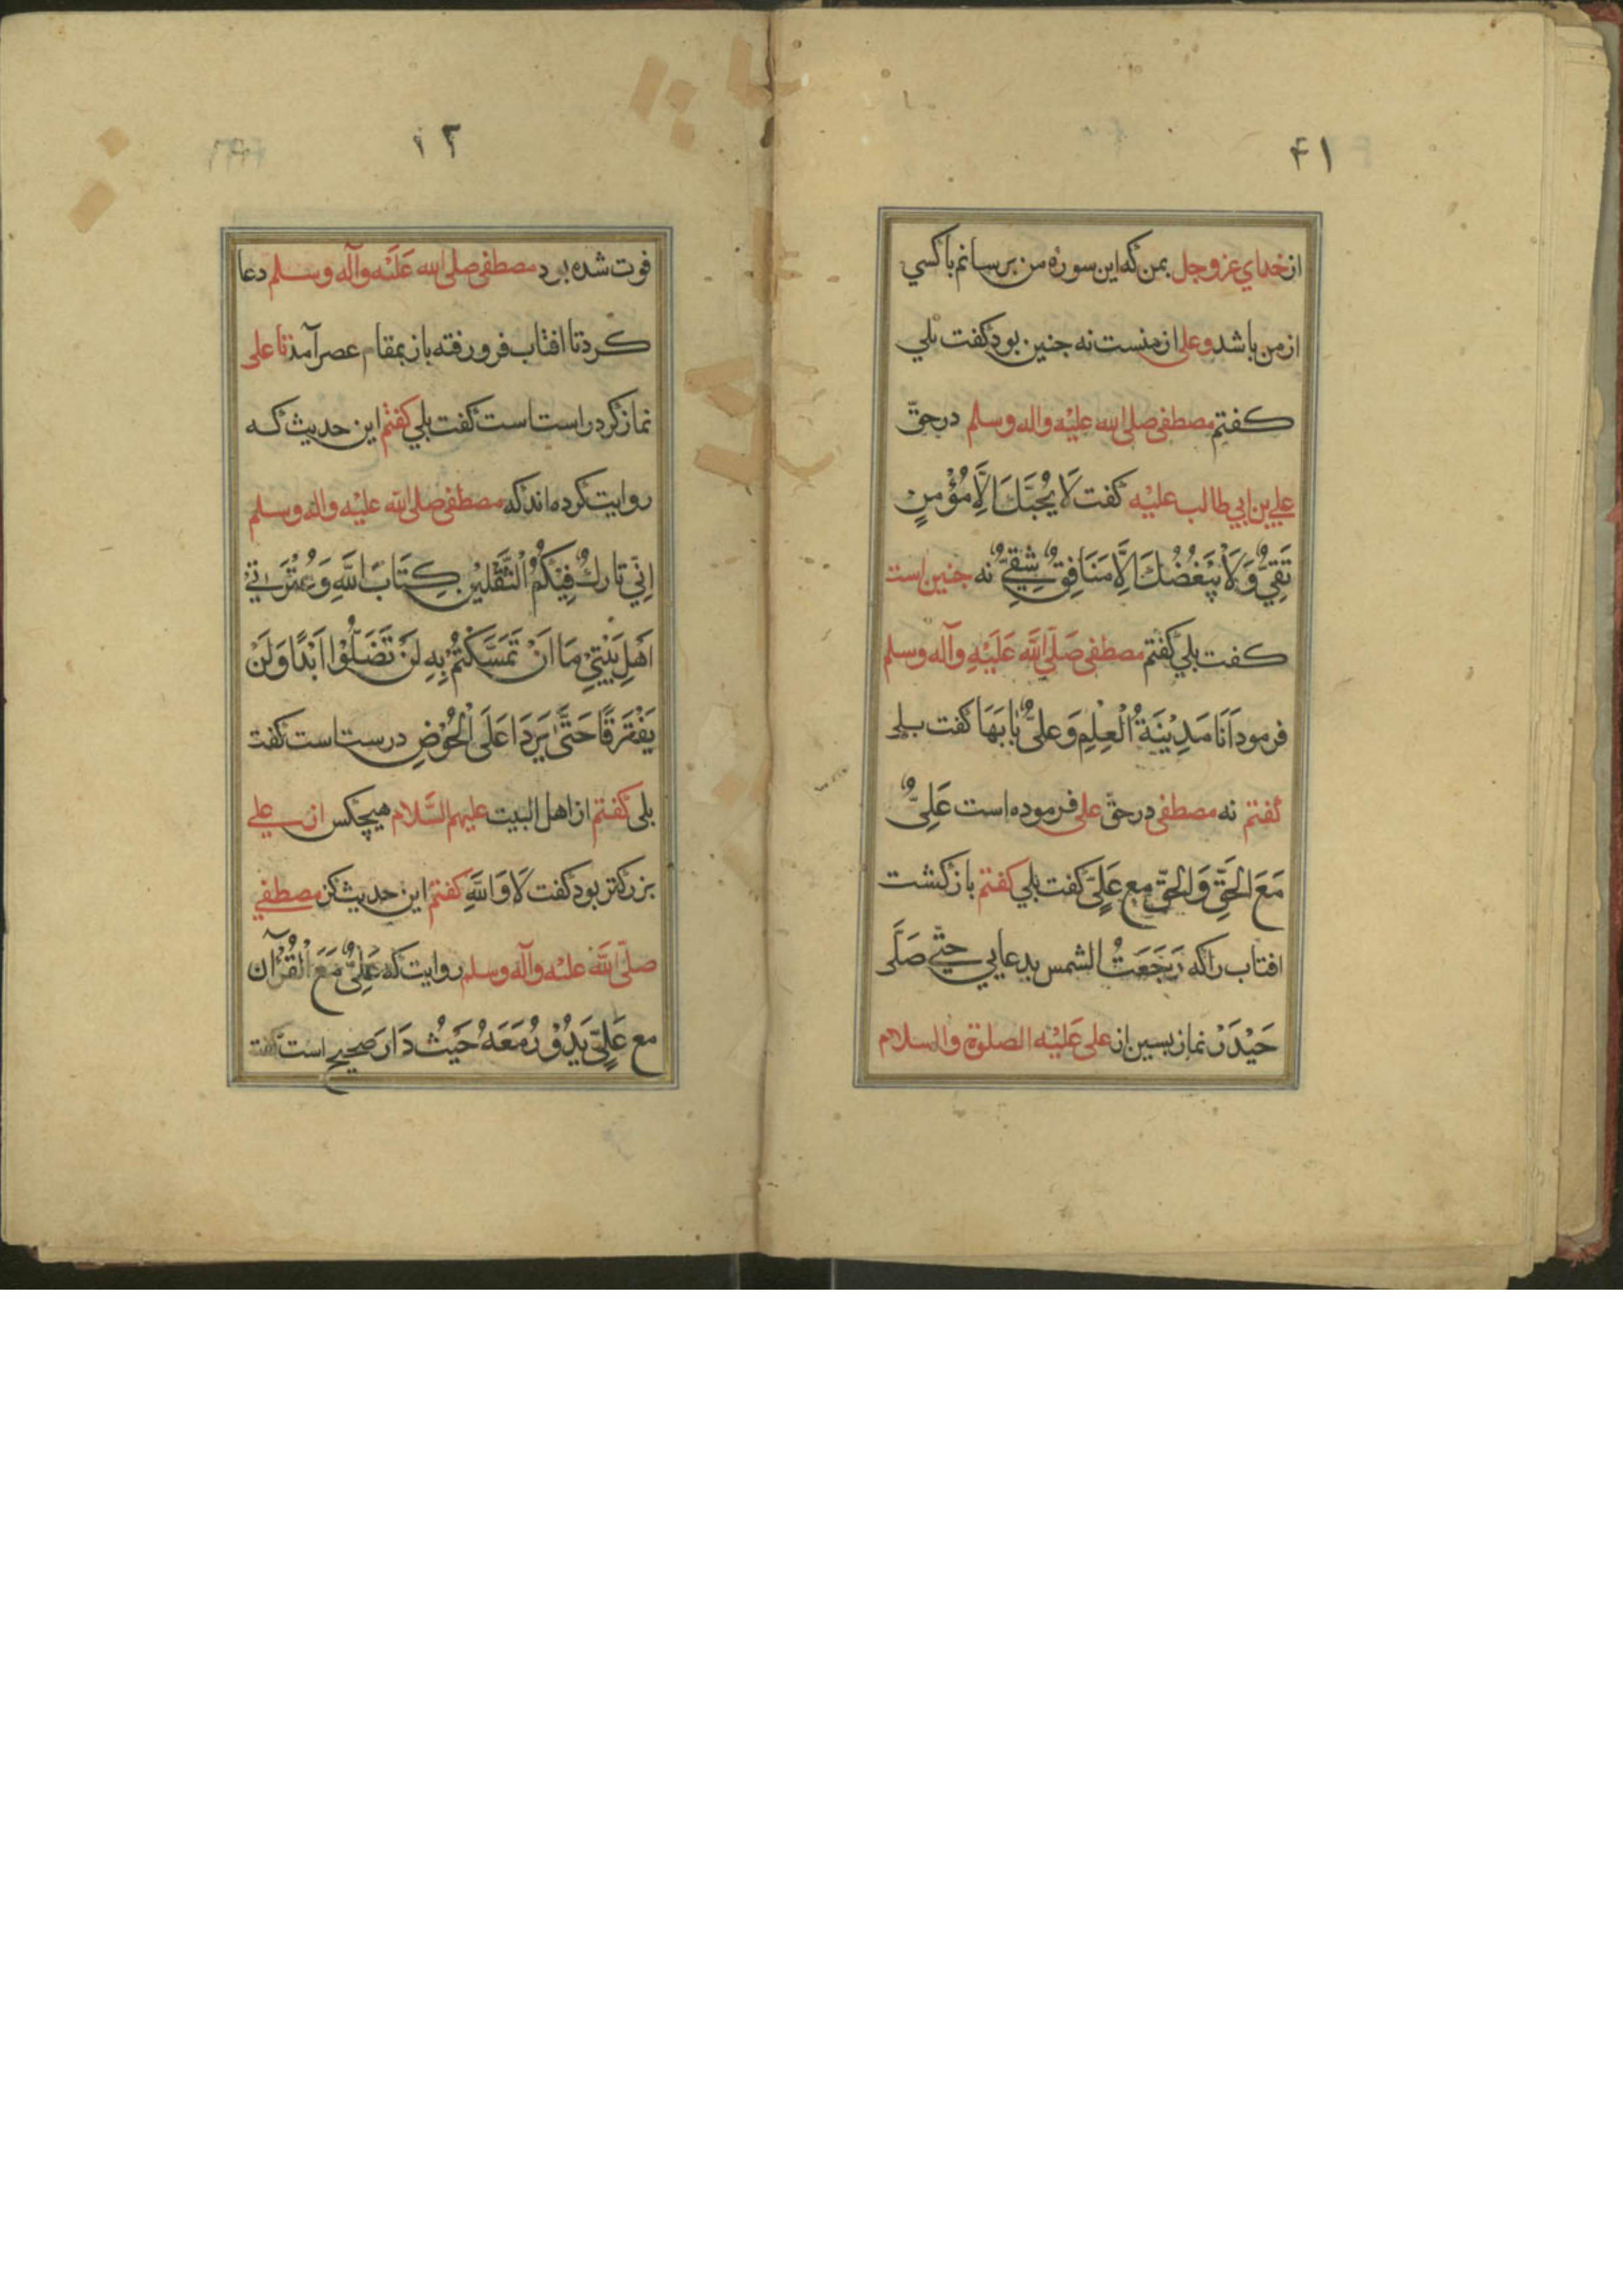 ۴۱
از خدای عز و جل بمن که این سوره من برسانم با کسي
از من باشد و علی از منست نه جنین بود کفت بلي
کفتم مصطفی صلی الله علیه واله وسلم در حقّ
علي بن ابي طالب علیْه کفت لَا یُحِبُّكَ اِلَّا مُؤْمِنٍ
تَقِيٌّ وَلَا یَبْغُضُكَ اِلَّا مَنَافِقٌ شِقِيٌّ نه جنین است
کفت بلي کفتم مصطفی صَلَّی اللَّه عَلَیْهِ وآله وسلم
فرمود اَنَا مَدِیْنَةُ الْعِلْمِ وَعلیٌّ بَابَهَا کفت بلی
کفتم نه مصطفی در حقّ علی فرموده است عَلِیٌّ
مَعَ الْحَقِّ وَالحَقّ مع عَلِيٍّ کفت بلي کفتم باز کشت
افتاب را که رَجَعَتُ الشمس بدعایي حتّٰي صَلَّی
حَیْدَرْ نماز بسین از علی عَلَیْه الصلوة والسلام
۴۲
فوت شده بود مصطفی صلی الله عَلَیْه وآله وسلم دعا
کرد تا افتاب فرو رفته باز بمقام عصر آمد تا علی
نماز کرد راست است کفت بلي کفتم این حدیث که
روایت کرده اند که مصطفی صلی الله علیْه واله وسلم
اِنِّي تَارِكٌ فِیْکُمُ الْثَّقَلَیْنِ کِتَابَ اللَّهِ وَعُتْرَتِيْ
اَهْلِ بَیْتِيْ مَا اَنْ تَمَسَّکْتُمْ بِهِ لَنْ تَضَلُّوْا اَبَدًا وَلَنْ
یَفْتَرِقَا حَتّٰی یَرِدَا عَلَی الْحُوْضِ درست است کفت
بلی کفتم از اهل البیت علیهم السَّلام هیچکس از علي
بزرکتر بود کفت لَا وَاللَّهِ کفتم این حدیث کز مصطفي
صلّی اللَّه علیْه وآله وسلم روایت که عَلِيٌّ مَعَ الْقُرْآن
مع عَلِيٍّ یَدُوْرُ مَعَهُ حَیْثُ دَارَ صحیح است کفت